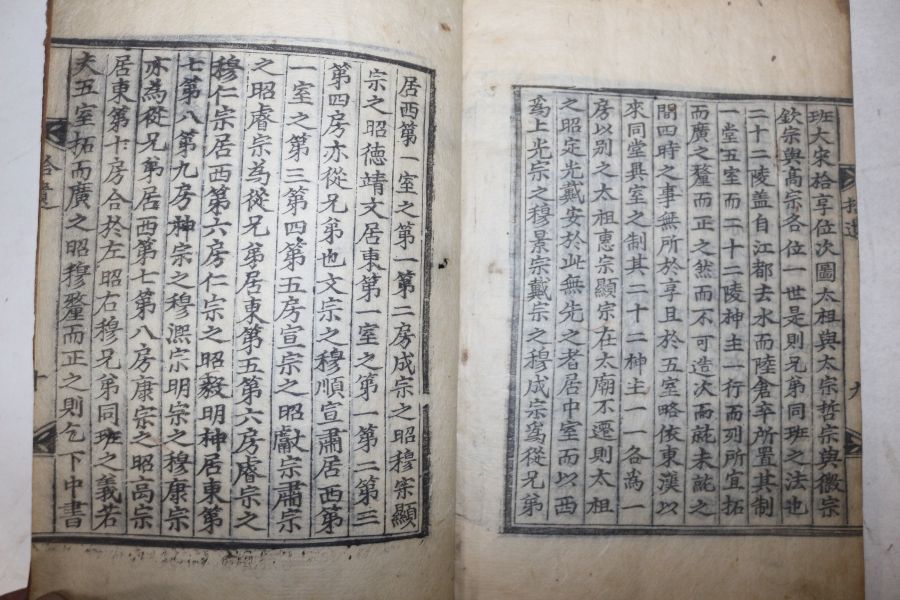 拾遺
九
班大宋祫享位次圖太祖與太宗哲宗與徽宗
欽宗與高宗各位一世是則兄弟同班之法也
二十二陵盖自江都去水而陸倉卒所置其制
一堂五室而二十二陵神主一行而列所宜拓
而廣之釐而正之然而不可造次而就未就之
間四時之事無所於享且於五室略依東漢以
來同堂異室之制其二十二神主一一各爲一
房以別之太祖惠宗顯宗在太廟不遷則太祖
之昭定光戴安於此無先之者居中室而以西
爲上光宗之穆景宗戴宗之穆成宗爲從兄弟
居西第一室之第一第二房成宗之昭穆宗顯
宗之昭德靖文居東第一室之第一第二第三
第四房亦從兄弟也文宗之穆順宣肅居西第
一室之第三第四第五房宣宗之昭獻宗肅宗
之昭睿宗為從兄弟居東第五第六房睿宗之
穆仁宗居西第六房仁宗之昭毅明神居東第
七第八第九房神宗之穆熙宗明宗之穆康宗
亦為從兄弟居西第七第八房康宗之昭高宗
居東第十房合於左昭右穆兄弟同班之義若
夫五室拓而廣之昭穆釐而正之則乞下中書
拾遺
十